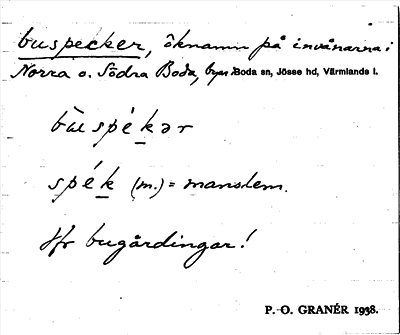 buspecker, öknamn på invånarna i
Norra o. Södra Boda, byar i Boda sn, Jösse hd, Värmlands l.
spé̱k (m.) = manslem.
Jfr bugårdingar!
P.-O. GRANÉR 1938.